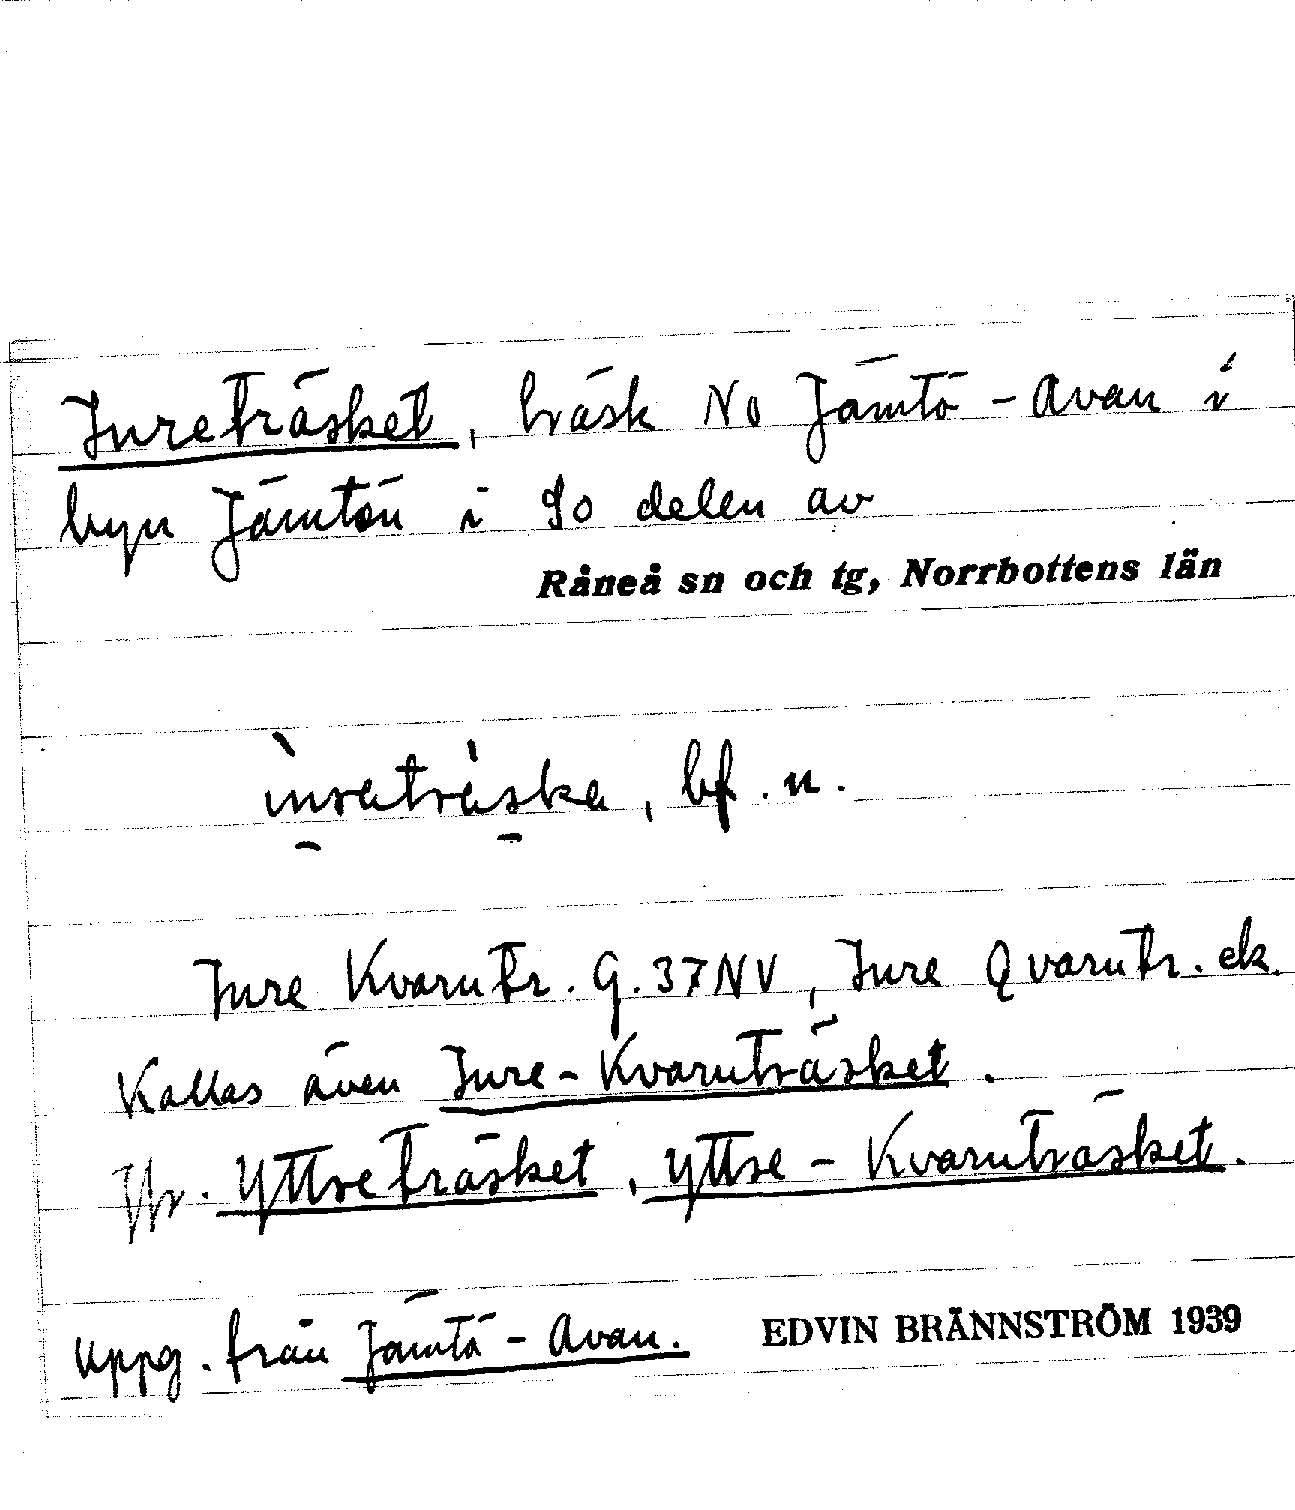 Inreträsket, träsk No Jämtö-Avan i
byn Jämtön i So delen av
Råneå sn och tg, Norrbottens län
ìnratràska, bf. n.
Inre Kvarntr. G. 37NV, Inre Qvarntr. ek.
Kallas även Inre-Kvarnträsket.
Jfr. Yttreträsket, Yttre-Kvarnträsket.
Uppg. från Jämtö-Avan. EDVIN BRÄNNSTRÖM 1939